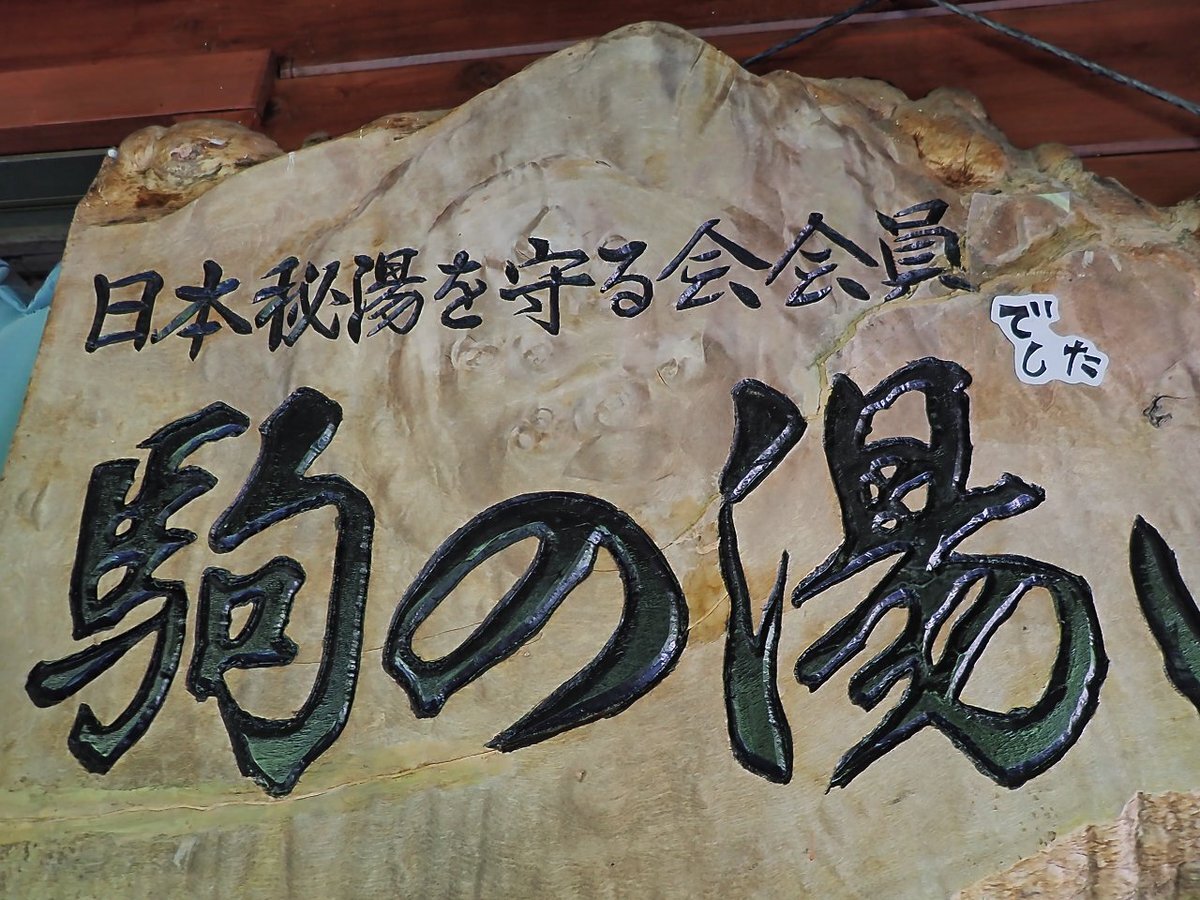 日本秘湯を守る会会員
でした
駒の湯